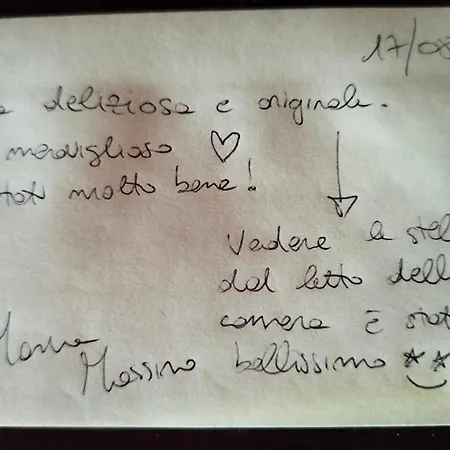 17/08
a deliziosa e originale.
meraviglioso ♡
tati molto bene!
Vedere le stel
dal letto dell
camera è stat
bellissimo
Massimo